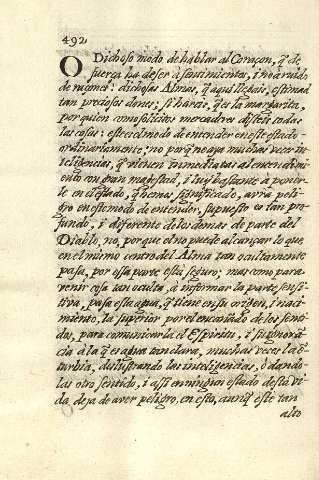 492
O Dichoso modo de hablar al Coraçon, q̃ de
fuerça ha de ser à sentimientos, i no à ruido
de razones: dichosas Almas, q̃ aqui llegais, estimad
tan preziosos dones; si hareis, q̃ es la margarita,
por quien como solicitos mercadores disteis todas
las cosas: este es el modo de entender en este estado
ordinariamente; no porq̃ no aya muchas vezes in-
teligencias, q̃ vienen inmediatas al entendimi-
ento con gran magestad, i luz bastante à poner-
le en el estado, q̃ hemos significado, avrà peli-
gro en este modo de entender, supuesto es tan pro-
fundo, i diferente de los demas de parte del
Diablo, no, porque el no puede alcançar lo que,
en el mimo centro del Alma tan ocultamente
pasa, por essa parte està seguro; mas como para
venir cosa tan oculta, à informar la parte sensi-
tiva, pasa esta agua, q̃ tiene en su origen, i naci-
miento, la superior por el encañado de los senti-
dos, para comunicarla el Espiritu, i su ignorã-
cia à la q̃ es agua tan clara, muchas vezes la ẽ-
turbia, deslustrando las inteligencias, ò dando-
las otro sentido, i assi en ningun estado desta vi-
da, deja de aver peligro, en esto, aunq̃ este tan
alto